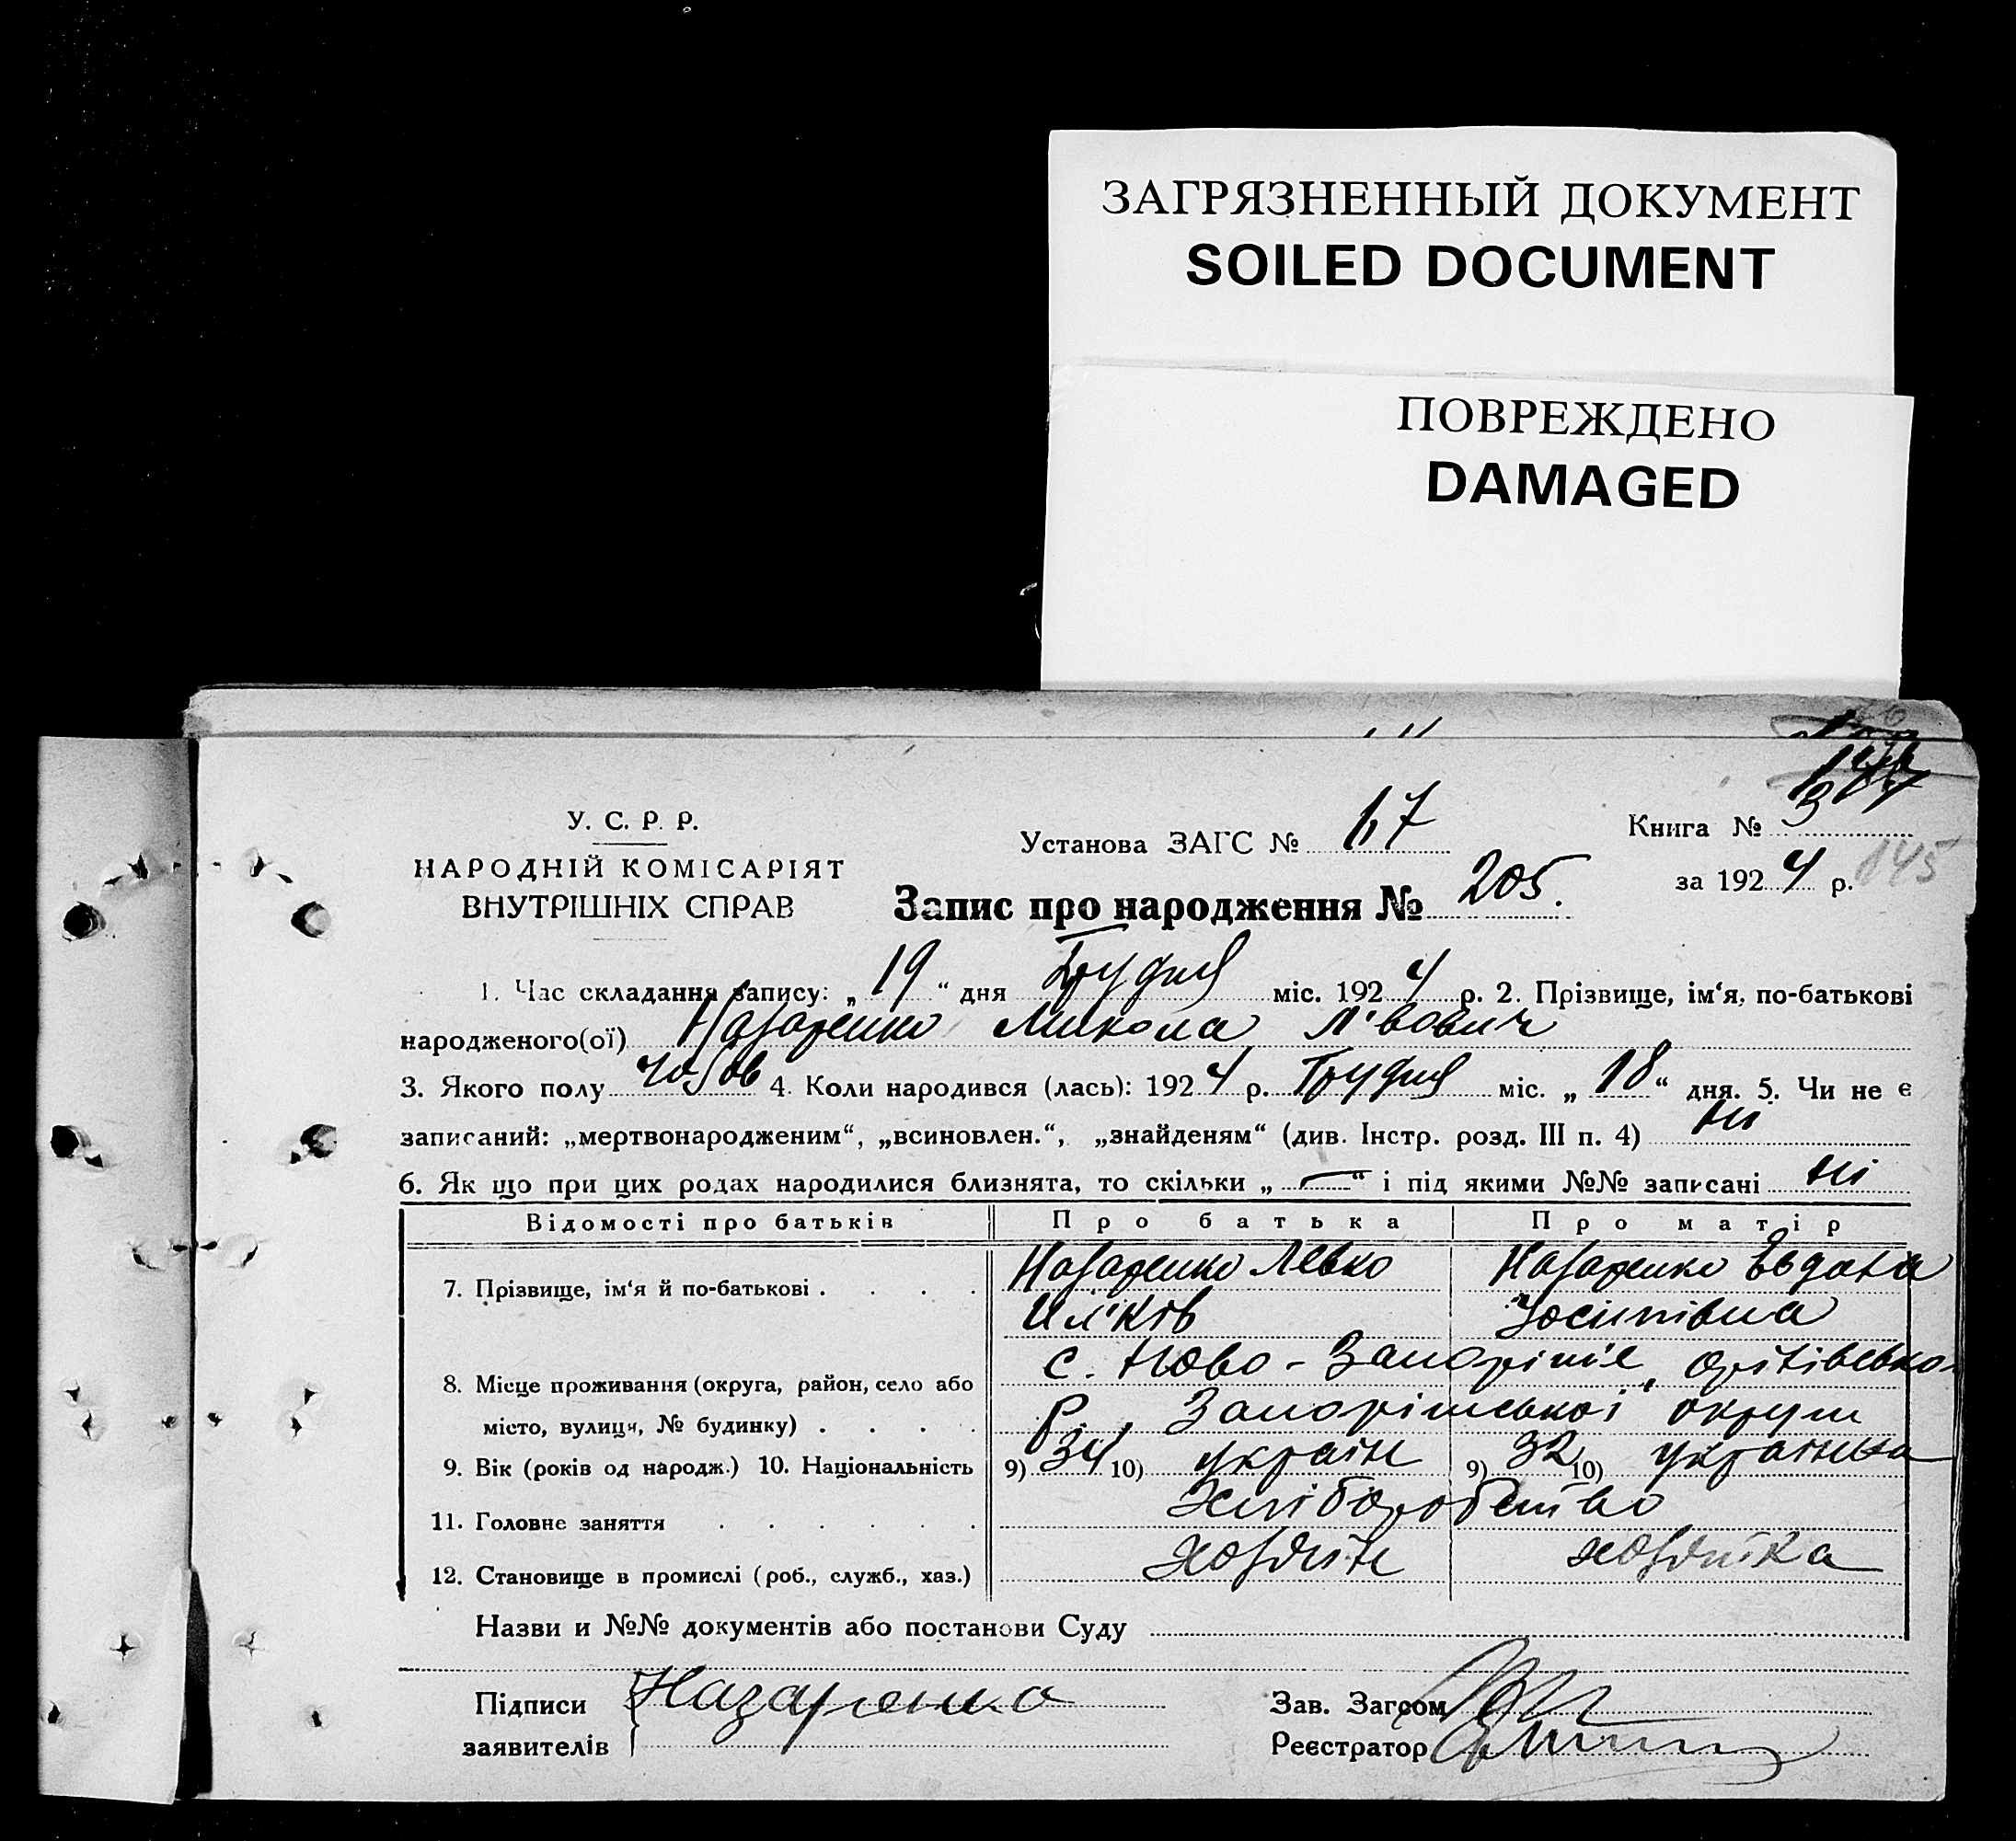 ЗАГРЯЗНЕННЫЙ ДОКУМЕНТ
SOILED DOCUMENT
ПОВРЕЖДЕНО
DAMAGED
У. С. Р. Р.
НАРОДНІЙ КОМІСАРІЯТ
ВНУТРІШНІХ СПРАВ
Установа ЗАГС № 17
Книга № 3
за 1924 р. 145
Запис про народження № 205.
1. Час складання запису: „19“ дня Грудня міс. 1924 р. 2. Прізвище, ім‘я, по-батькові
народженого(ої) Назаренко Микола Л'вович
3. Якого полу чолов 4. Коли народився (лась): 1924 р. Грудня міс. „18“ дня. 5. Чи не є
записаний: „мертвонародженим“, „всиновлен.“, „знайденям“ (див. Інстр. розд. III п. 4) ні
6. Як що при цих родах народилися близнята, то скільки „—“ і під якими №№ записані ні
Відомості про батьків Про батька Про матір
7. Прізвище, ім‘я й по-батькові . . . . Назаренко Левко Назаренко Евдокія
Ильків Йосипівна
8. Місце проживання (округа, район, село або с. Ново-Запоріжжє,
місто, вулиця, № будинку) . . . . Р., Запоріжської округи
9. Вік (років од народж.) 10. Національність 9) 34 10) україн 9) 32 10) українка
11. Головне заняття . . . . . . хліборобство
12. Становище в промислі (роб., служб., хаз.) хозяін хозяйка
Назви и №№ документів або постанови Суду
Підписи Назаренко Зав. Загсом
заявителів Реєстратор